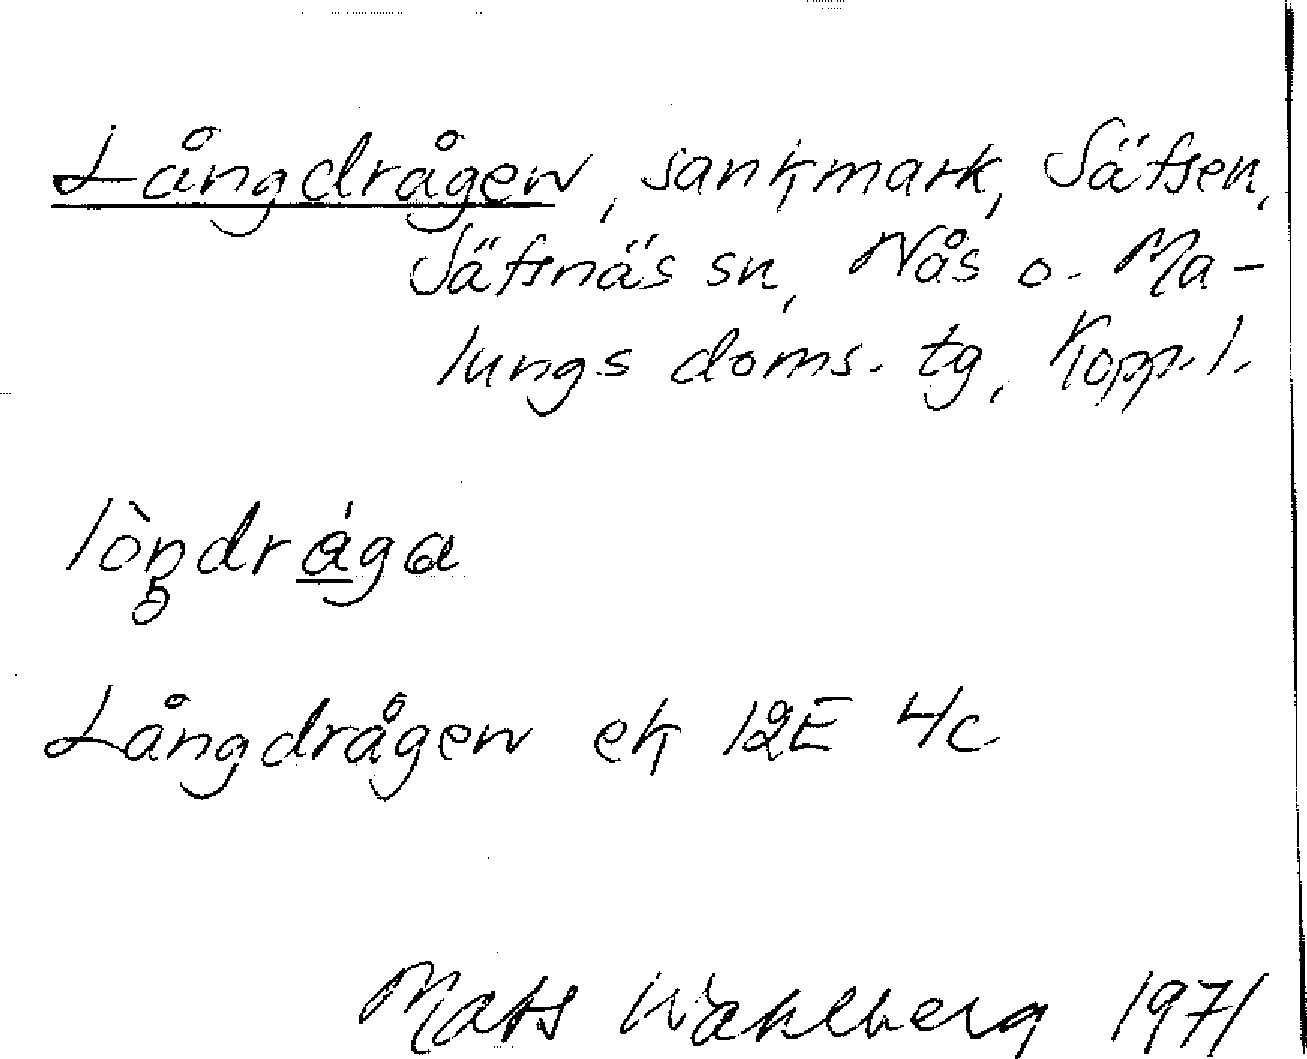 Långdrågen, sankmark, Säfsen,
Säfsnäs sn, Nås o. Ma-
lungs doms. tg, Kopp. l.
lòŋdrága
Långdrågen ek 12E 4c
Mats Wahlberg 1971